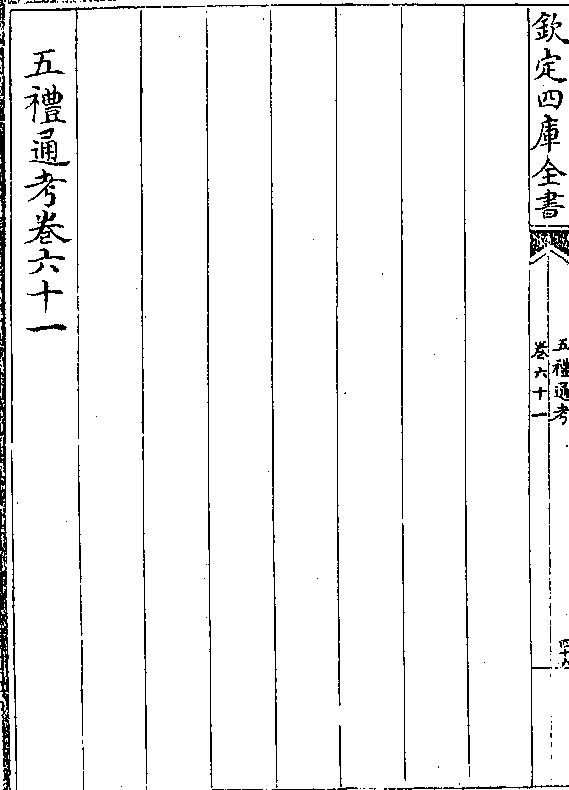 欽定四庫全書
五禮通考
卷六十一
五禮通考卷六十一